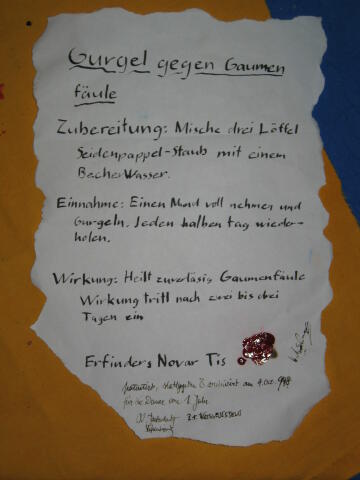 Gurgel gegen Gaumen
fäule
Zubereitung: Mische drei Löffel
Seidenpappel-Staub mit einem
Becher Wasser.
Einnahme: Einen Mund voll nehmen und
Gurgeln. Jeden halben tag wieder-
holen.
Wirkung: Heilt zuverläsig Gaumenfäule
Wirkung tritt nach zwei bis drei
Tagen ein
Erfinders Novar Tis
für die Dauer von 1 Jahr